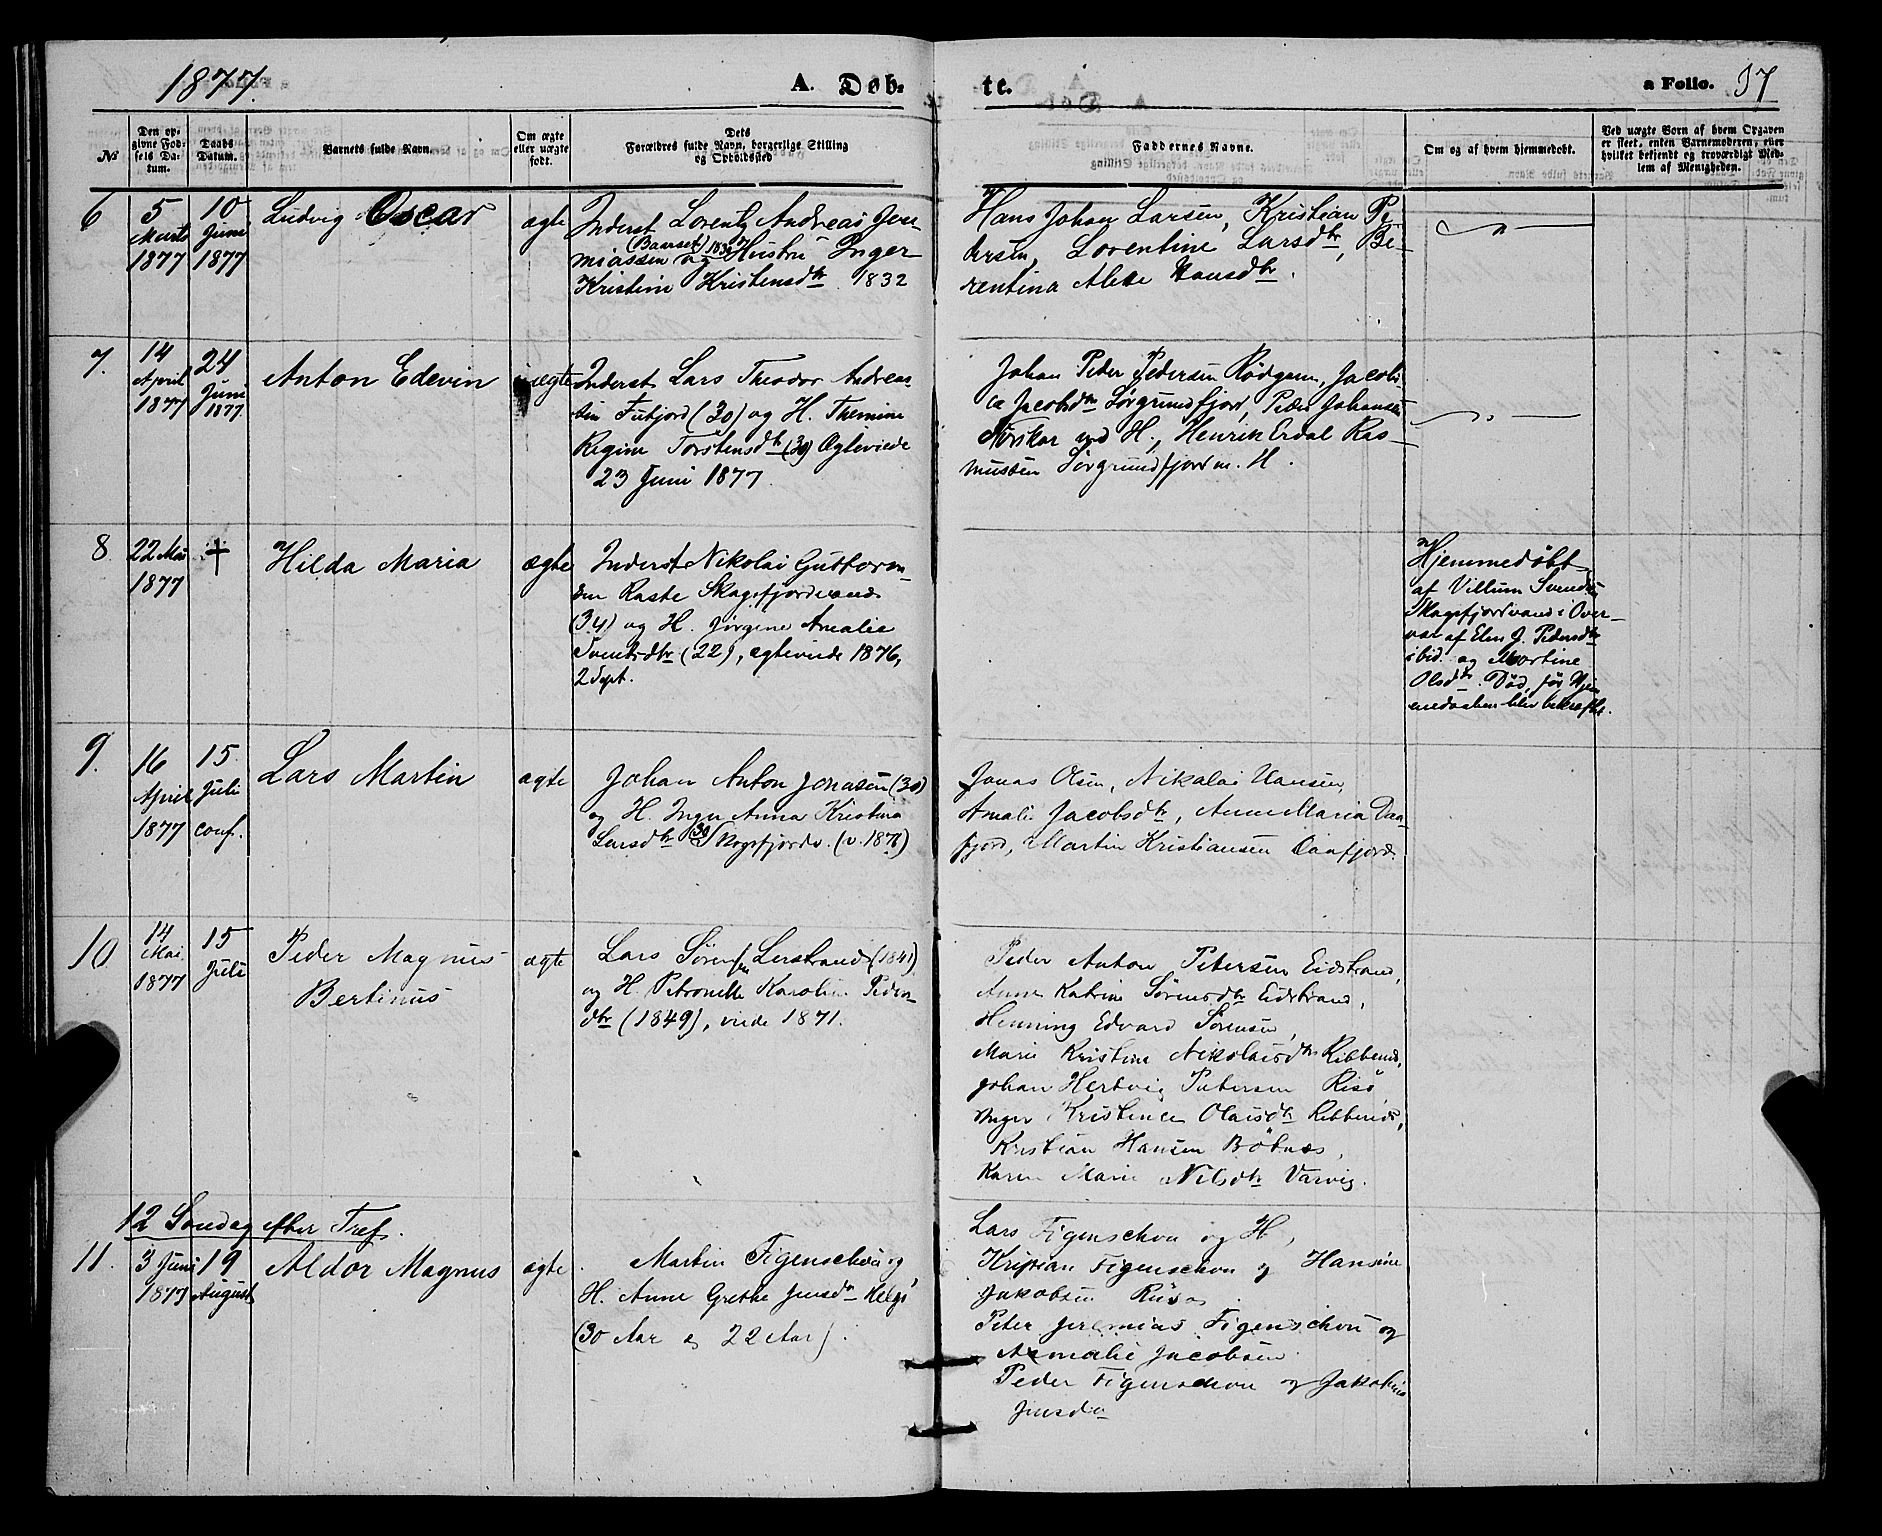 1877.
A. Døb-
te.
a Folio. 37
№
Den op-
givne Fød-
sels Da-
tum.
Daabs
Datum.
Barnets fulde Navn.
Om ægte
eller uægte
født.
Dets
Forældres fulde Navn, borgerlige Stilling
og Opholdssted
Faddernes Navne.
Om og af hvem hjemmedøbt.
Ved uægte Børn af hvem Opgaven
er skeet, enten Barnemoderen, eller
hvilket bekjendt og troværdigt Med-
lem af Menigheden.
6
5
Marts
1877
10
Juni
1877
Ludvig Oscar
ægte
Inderst Lorentz Andreas Jere-
miassen og Hustru Inger
Kristine Kristensdtr 1832
Hans Johan Larsen, Kristian Pe-
dersen, Lorentine Larsdtr, Be-
rentina Alette Hansdtr.
7.
14
April
1877
24
Juni
1877.
Anton Edevin
ægte
Inderst Lars Theodor Andreas-
sen (30) og H. Themine
Regine Torstensdtr (30) Ægteviede
23 Juni 1877.
Johan Peder Pedersen Rødgam, Jacobi-
ca Jacobsdtr Sørgrundfjord, Peder Johansen
Torskar med H., Henrik Erdal Ras-
mussen Sørgrundfjord m. H.
8
22 Mai
1877
†
Hilda Maria
ægte
Inderst Nikolai Guttorm-
sen Raste Skogsfjordvand
(34) og H. Jørgine Amalie
Svendsdtr (22), ægteviede 1876,
2 Sept.
Hjemmedøbt
af Villum Svendsen
Skogsfjordvand i Over-
vær af Elen J. Pedersdtr
ibid. og Martine
Olsdtr. Død, før Hjem-
medaaben blev bekræftet.
9.
16
April
1877
15
Juli
conf.
Lars Martin
ægte
Johan Anton Jonasen (30)
og H. Inger Anna Kristina
Larsdtr (30) Skogsfjordv. (v. 1876)
Jonas Olsen, Nikolai Hansen,
Amalie Jacobsdtr, Anne Maria Daa-
fjord, Martin Kristiansen Daafjord.
10.
14
Mai
1877
15
Juli
Peder Magnus
Bertinus
ægte
Lars Sørensen Lerstrand (1841)
og H. Petronelle Karoline Peders-
dtr (1849), viede 1871.
Peder Anton Petersen Eidstrand,
Anne Katrine Sørensdtr Eidstrand,
Henning Edvard Sørensen,
Marie Kristine Nikolaisdtr Ribbenes,
Johan Hertvig Petersen Risø
Inger Kristence Olaisdtr Ribbenes,
Kristian Hansen Bøtnæs,
Karen Marie Nilsdtr Vasvig.
12 Søndag efter Tref.
11.
3 Juni
1877
19
August
Aldor Magnus
ægte
Martin Figenschou og
H. Anne Grethe Jensdtr Helgø
(30 Aar og 22 Aar).
Lars Figenschou og H,
Kristian Figenschou og Hansine
Jakobsen
Peter Jeremias Figenschou og
Amalie Jacobsen
Peder Figenschou og Jakobine
Jensdtr